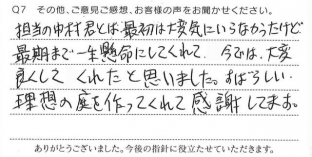 Q7 その他、ご意見ご感想、お客様の声をお聞かせください。
担当の中村君とは、最初は大変気にいらなかったけど
最期まで一生懸命にしてくれて、今では、大変
良くして くれたと思いました。すばらしい
理想の庭を作ってくれて 感謝してます。
ありがとうございました。今後の指針に役立たせていただきます。